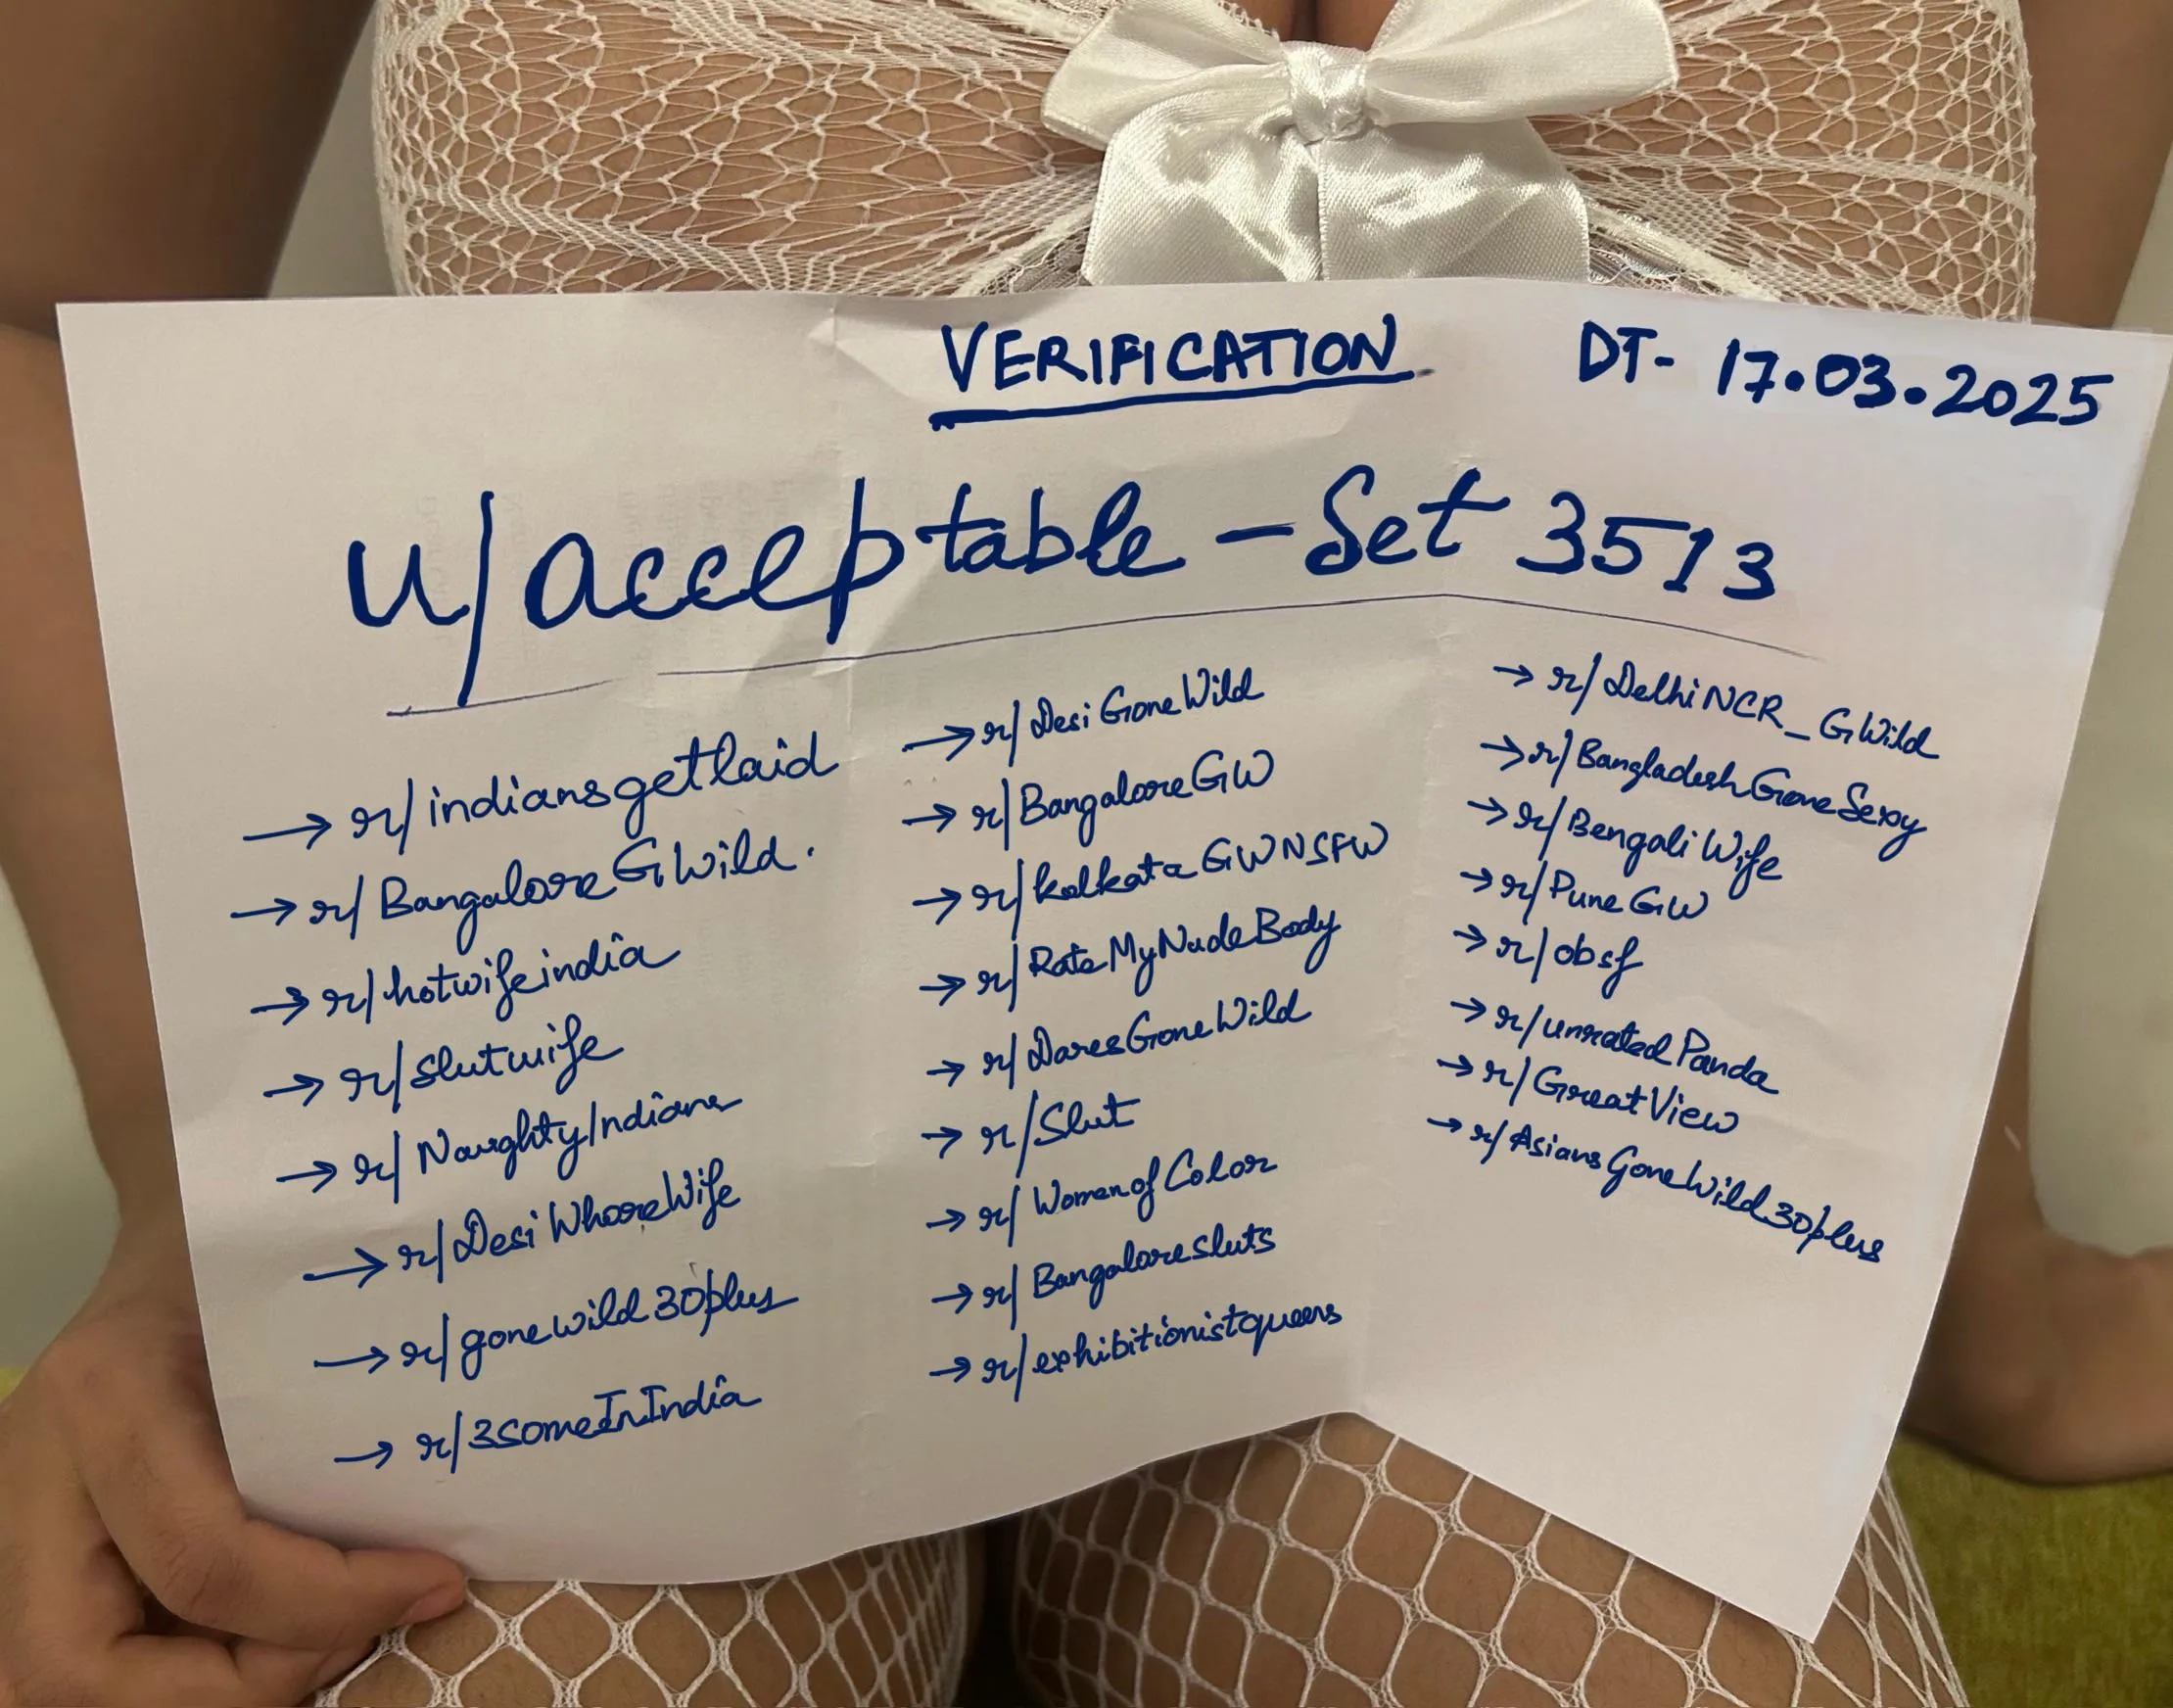 VERIFICATION
DT- 17.03.2025
u/acceptable-Set3513
→ r/indiansgetlaid
→ r/BangaloreGWild.
→ r/hotwifeindia
→ r/slutwife
→ r/NaughtyIndians
→ r/DesiWhoreWife
→ r/gonewild30plus
→ r/3someInIndia
→ r/DesiGoneWild
→ r/BangaloreGW
→ r/kolkataGWNSFW
→ r/RateMyNudeBody
→ r/DaresGoneWild
→ r/Slut
→ r/WomenofColor
→ r/Bangaloresluts
→ r/exhibitionistqueens
→ r/DelhiNCR_GWild
→ r/BangladeshGoneSexy
→ r/BengaliWife
→ r/PuneGW
→ r/obsf
→ r/unratedPanda
→ r/GreatView
→ r/AsiansGoneWild30plus